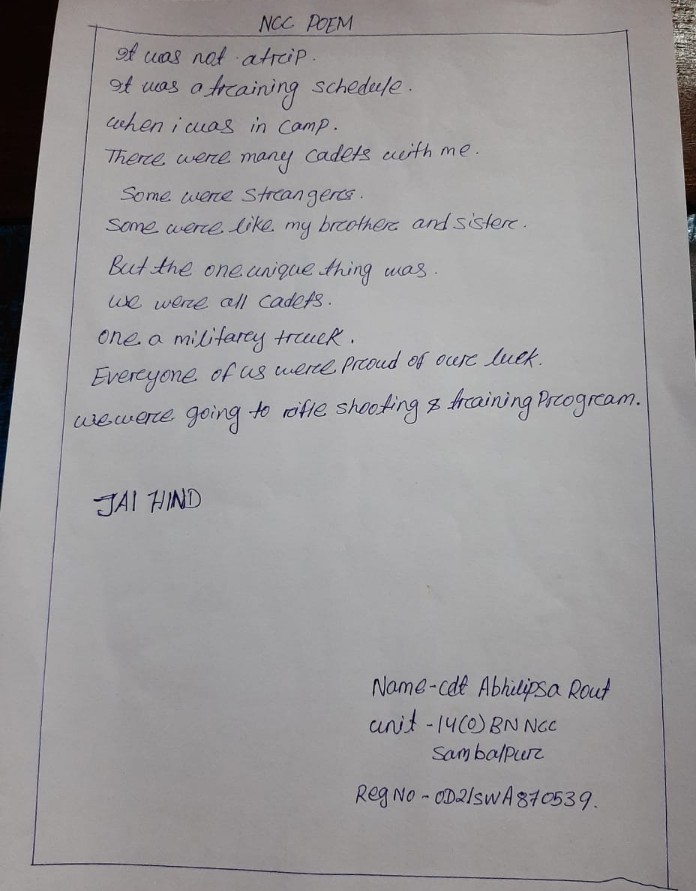 NCC POEM
It was not a trip.
It was a training schedule.
when i was in camp.
There were many cadets with me.
Some were strangers.
Some were like my brother and sister.
But the one unique thing was.
we were all cadets.
One a military truck.
Everyone of us were proud of our luck.
we were going to rifle shooting & training Program.
JAI HIND
Name-cdt Abhilipsa Rout
unit -14(O) BN NCC
Sambalpur
Reg No - OD21SWA870539.